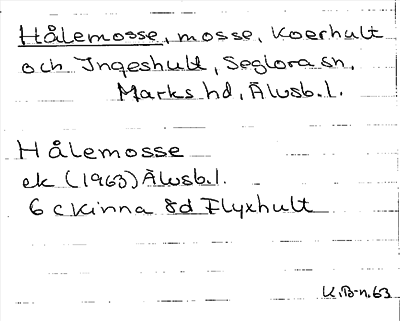 Hålemosse, mosse, Koerhult
och Ingeshult, Seglora sn,
Marks hd, Älvsb. l.
Hålemosse
ek (1963) Älvsb.l.
6 c Kinna 8d Flyxhult
K.B-n. 63